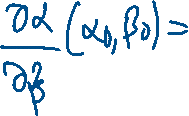 ∂α/∂β (α₀, β₀) =